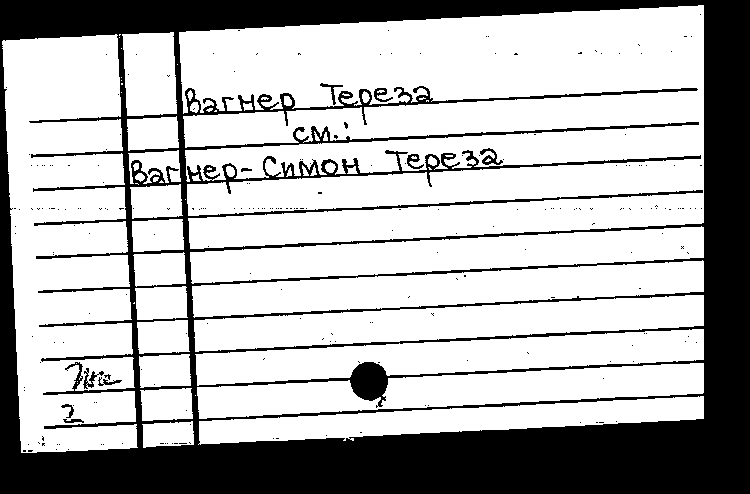 Вагнер Тереза
см.:
Вагнер-Симон Тереза
2